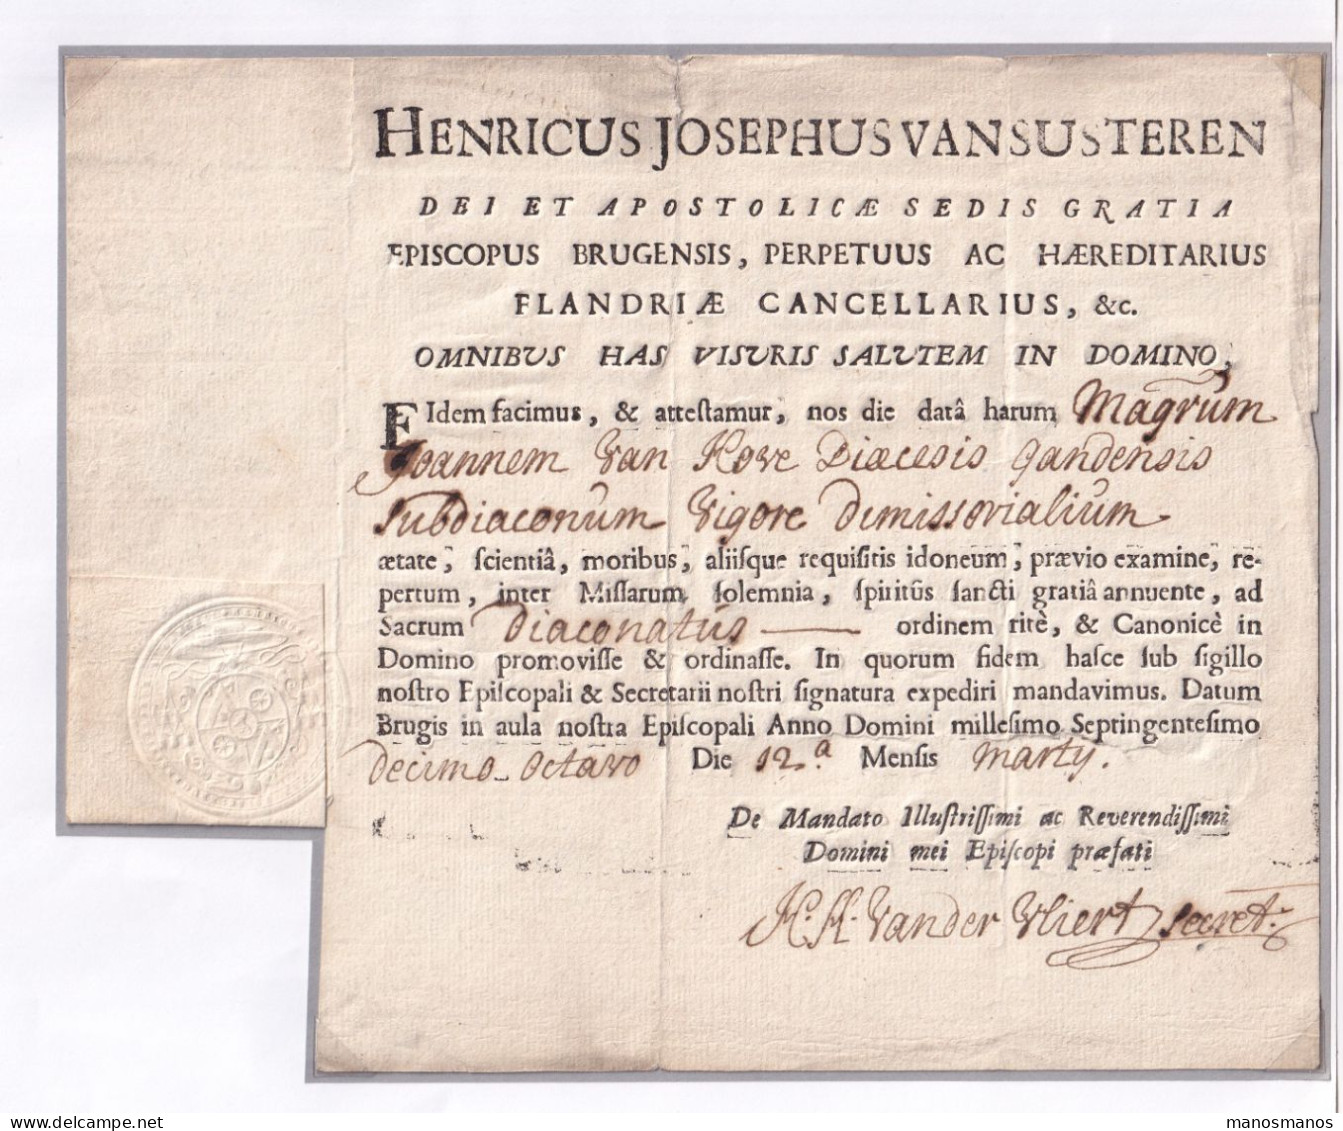 HENRICUS JOSEPHUS VAN SUSTEREN
DEI ET APOSTOLICÆ SEDIS GRATIA
EPISCOPUS BRUGENSIS, PERPETUUS AC HÆREDITARIUS
FLANDRIÆ CANCELLARIUS, &c.
OMNIBUS HAS VISURIS SALUTEM IN DOMINO,
FIdem facimus, & attestamur, nos die datâ harum Magrum
Joannem Van Hove Diœcesis gandensis
Subdiaconum Vigore Dimissorialium
ætate, scientiâ, moribus, aliisque requisitis idoneum, prævio examine, re-
pertum, inter Missarum solemnia, spiritûs sancti gratiâ annuente, ad
Sacrum Diaconatûs ordinem ritè, & Canonicè in
Domino promovisse & ordinasse. In quorum fidem hasce sub sigillo
nostro Episcopali & Secretarii nostri signatura expediri mandavimus. Datum
Brugis in aula nostra Episcopali Anno Domini millesimo Septringentesimo
Decimo Octavo Die 12.a Mensis Martÿ.
De Mandato Illustrissimi ac Reverendissimi
Domini mei Episcopi præfati
H. H. Vander Vliert secret.
manosmanos